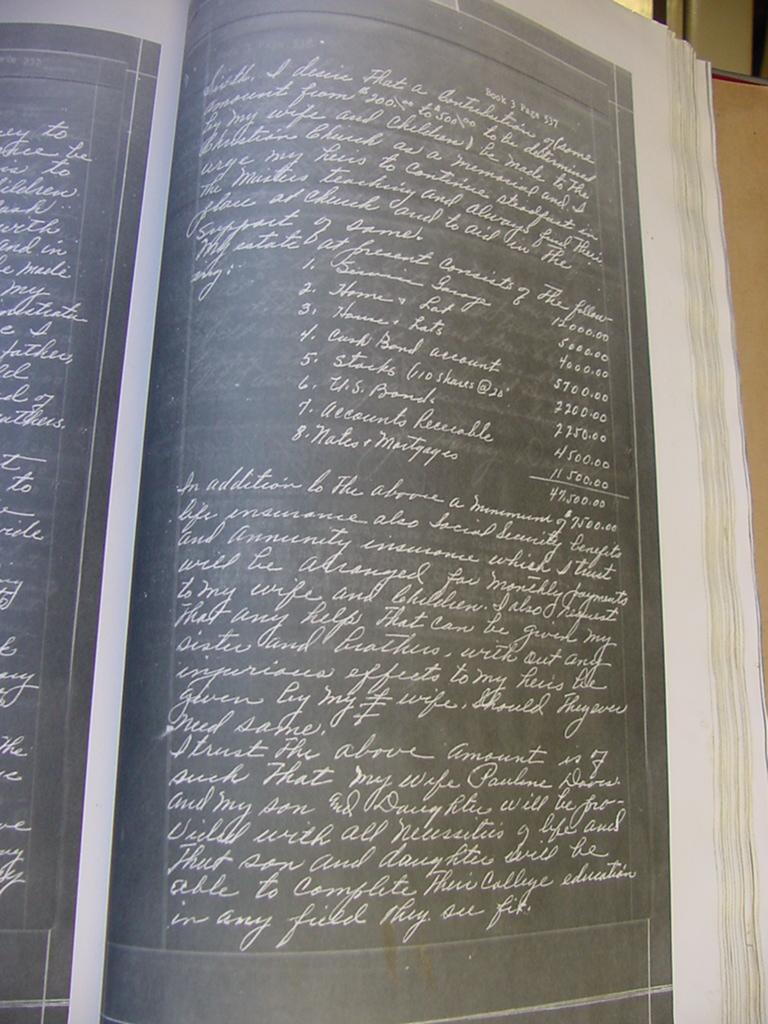 Book 3 Page 537
Sixth. I desire that a contribution of some
amount from $200.00 to $500.00 to be determined
by my wife and children, be made to the
Christian Church as a memorial and I
urge my heirs to continue steadfast in
the Masters teaching and always find their
place at church and to aid in the
support of same.
My estate at present consists of the follow
ing:
1. Service Garage 12000.00
2. Home & Lot 5000.00
3. House & Lots 4000.00
4. Cash Bond account 5700.00
5. Stocks (110 shares @ 20 2200.00
6. U.S. Bonds 2250.00
7. Accounts Receivable 4500.00
8. Notes & Mortgages 11500.00
47,500.00
In addition to the above a minimum of $7500.00
life insurance also Social Security benefits
and annunity insurance which I trust
will be arranged for monthly payments
to my wife and children. I also request
that any help that can be given my
sister and brothers, with out any
injurious effects to my heirs be
given by my wife. Should they ever
need same.
I trust the above amount is of
such that my wife Pauline Davis
and my son and Daughter will be pro-
vided with all necessities of life and
that son and daughter will be
able to complete their college education
in any field they see fit.
ey to
be
to
ildren
and in
e made
my
father,
d of
t,
to
vide
my
The